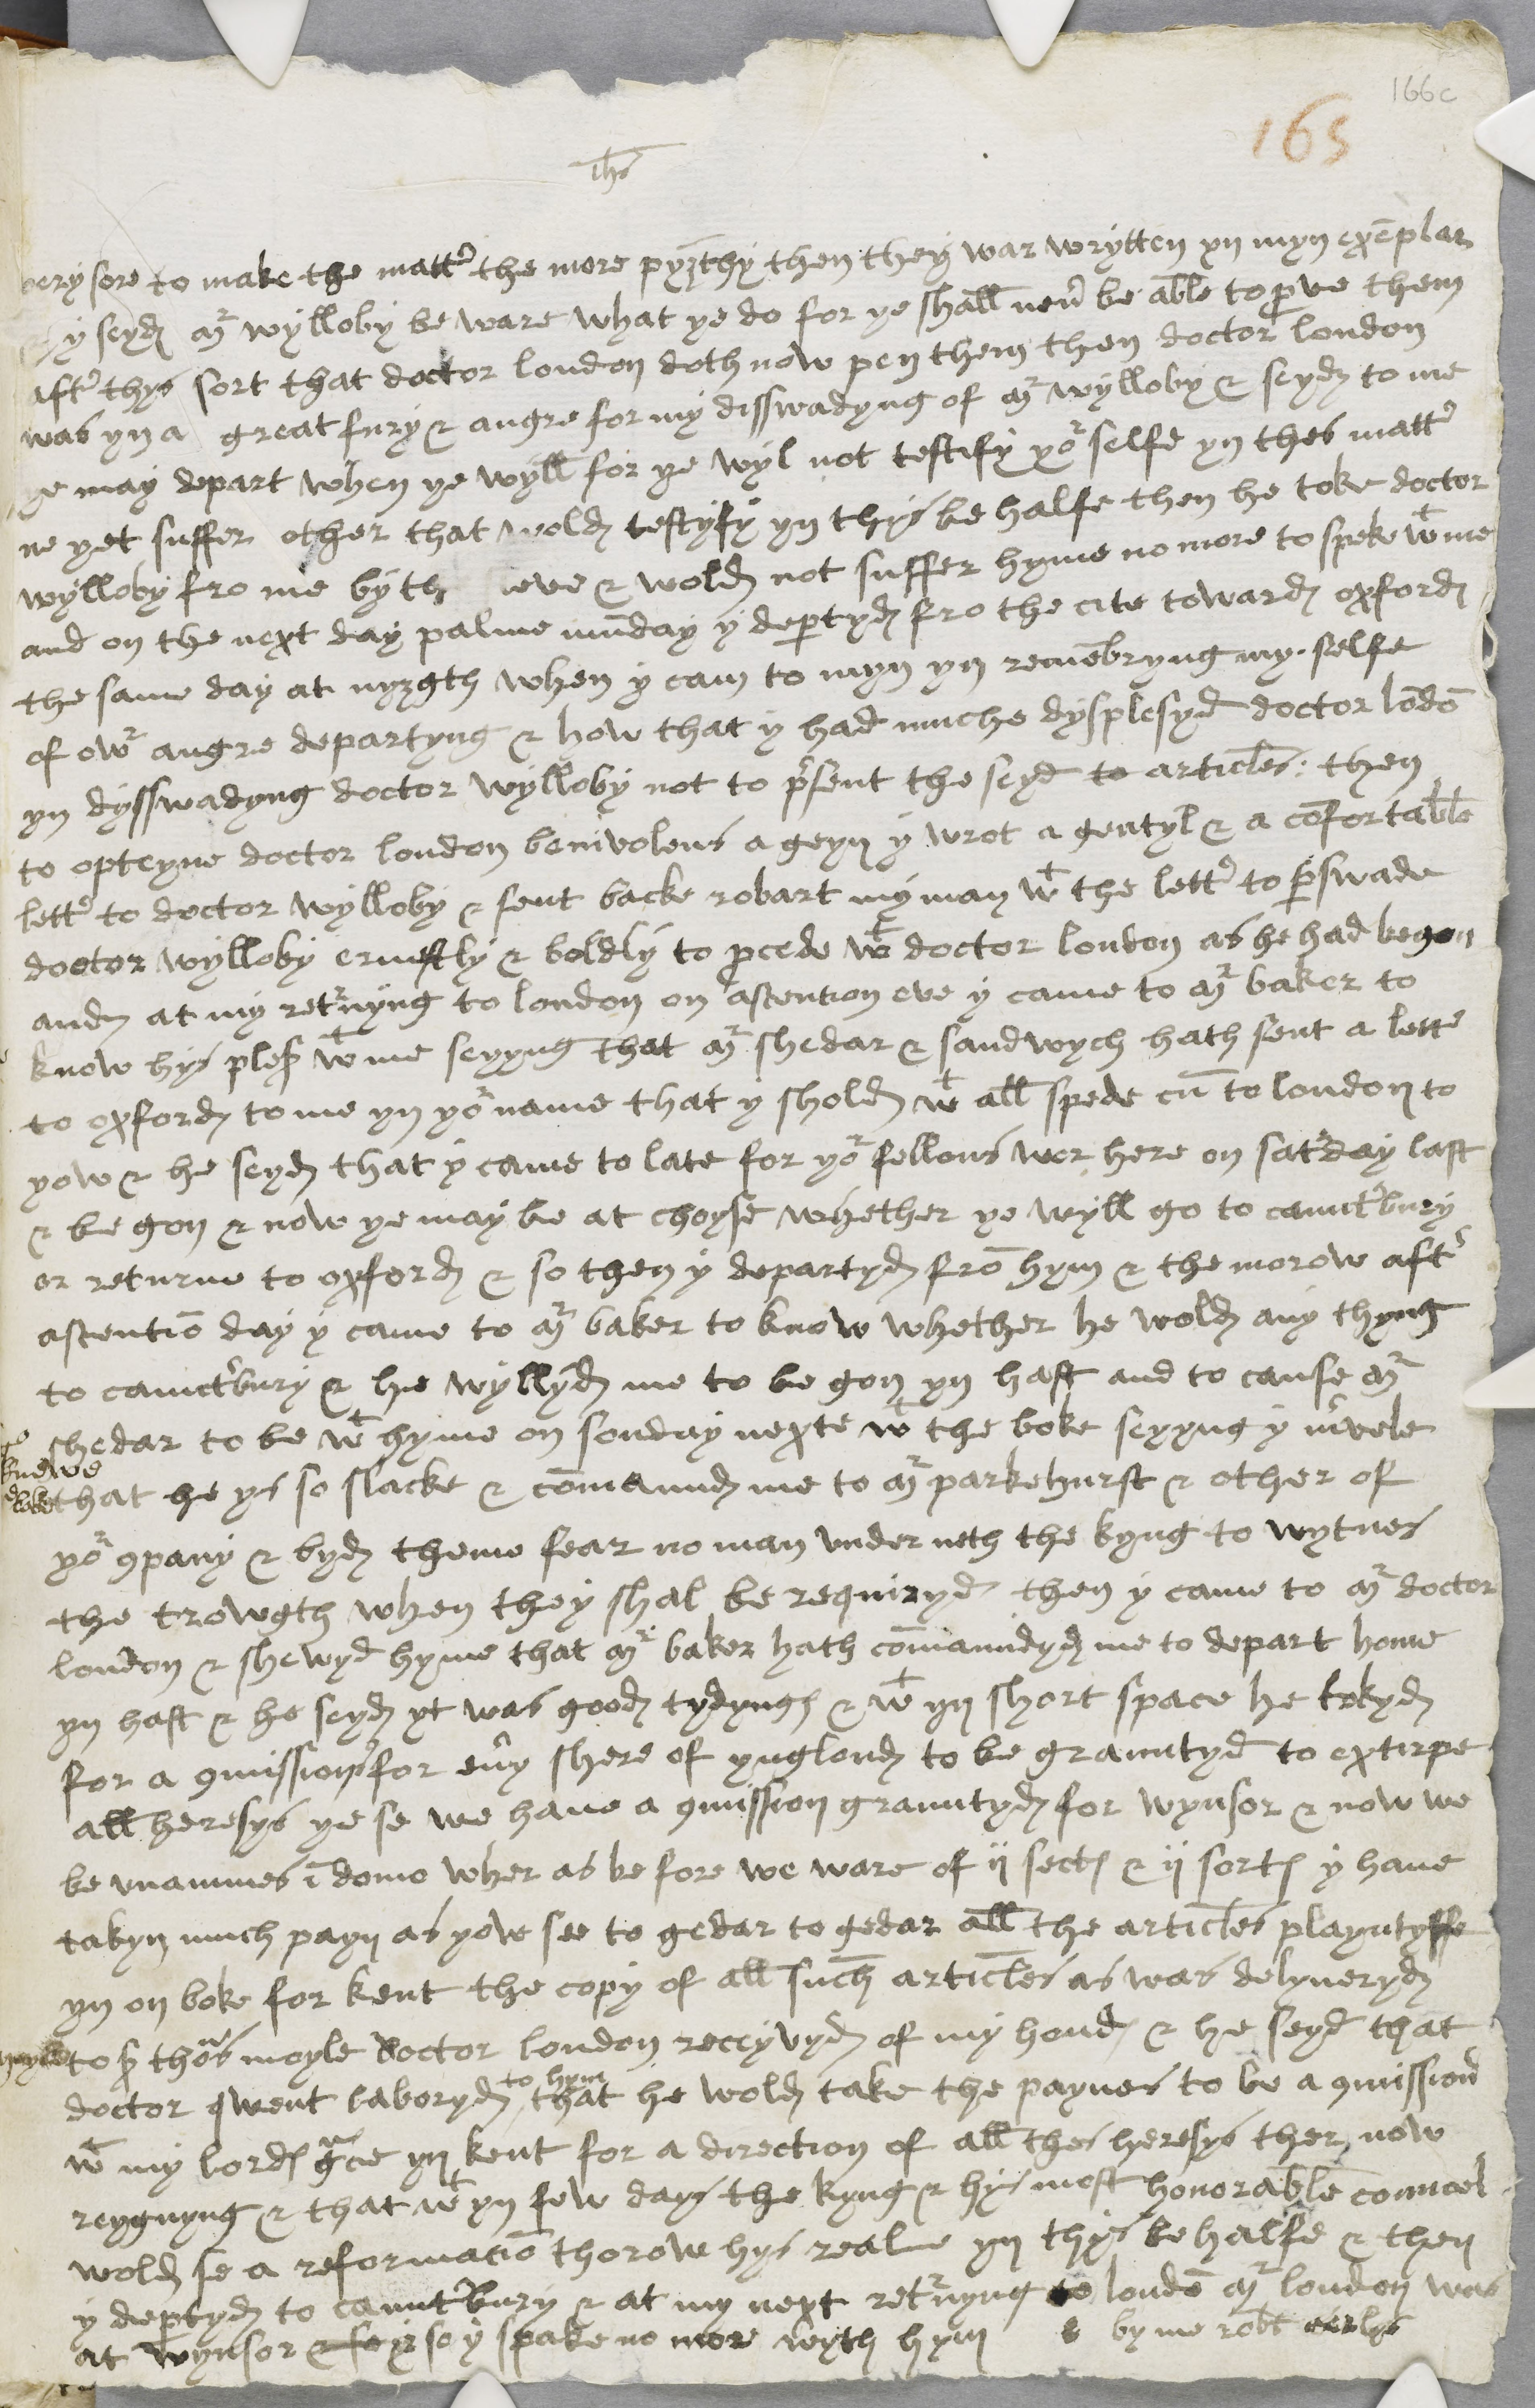 166c
165
ihs
very sore to make the matter the more pyȝthy then they war wrytten yn myn exēplar
y seyd mr wylloby be ware what ye do for ye shall nevr be able to prve them
aftr thys sort that doctor london doth now pen them then doctor london
was yn a great fury & angre for my disswadyng of mr wylloby & seyd to me
ye may depart when ye wyll for ye wyl not testify yor selfe yn thes mattr
ne yet suffer other that wold testyfy yn thys be halfe then he toke doctor
wylloby fro me by th eve & wold not suffer hyme no more to speke wt me
and on the next day palme mūday y deptyd fro the cite toward oxford
the same day at nyȝgth when y cam to myn yn remēbryng my selfe
of owr angre departyng & how that y had muche dysplesyd doctor lōdō
yn dysswadyng doctor wylloby not to prsent the seyd to articles: then
to opteyne doctor london benivolens a geyn y wrot a gentyl & a cōfortable
lettr to doctor wylloby & sent backe robart my man wt the lettr to pswade
doctor wylloby ernestly & boldly to pcede wt doctor london as he had begon
and at my retrnyng to london on ascention eve y came to mr baker to
know hys ples wt me seyyng that mr shedar & sandwych hath sent a lettr
to oxford to me yn yor name that y shold wt all spede cū to london to
yow & he seyd that y came to late for yor fellous wer here on satrday last
& be gon & now ye may be at choyse whether ye wyll go to cauntrbury
or returne to oxford & so then y departyd frō hym & the morow aftr
ascentiō day y came to mr baker to know whether he wold any thyng
to cauntrbury & he wyllyd me to be gon yn hast and to cause mr
shedar to be wt hyme on sonday nexte wt the boke seyyng y mrvele
knewe
that he ys so slacke & cōmaund me to mr parkehurst & other of
yor 9pany & byd theme fear no man under neth the kyng to wytnes
the trowgth when they shal be requiryd then y came to mr doctor
london & shewyd hyme that mr baker hath cōmaundyd me to depart home
yn hast & he seyd yt was good tydyngs & wt yn short space he lokyd
for a 9mission for evry shere of ynglond to be grauntyd to extirpe
all heresys ye se we have a 9mission grauntyd for wynsor & now we
be unanimes ī domo wher as be fore we ware of ij sects & ij sorts y have
takyn much payn as yow see to gedar to gedar all the articles playntyffe
yn on boke for kent the copy of all such articles as was delyueryd
to sr thōs moyle doctor london receyvyd of my hond & he seyd that
doctor qwent laboryd to hym that he wold take the paynes to be a 9missionr
wt my lords grace yn kent for a direction of all thes heresys ther now
reygnyng & that wt yn few days the kyng & hys most honorable councel
wold se a reformatiō thorow hys realme yn thys be halfe & then
y deptyd to cauntrbury & at my next retrnyng to londō mr london was
at wynsor & so y spake no more wyth hym by me robt serlys